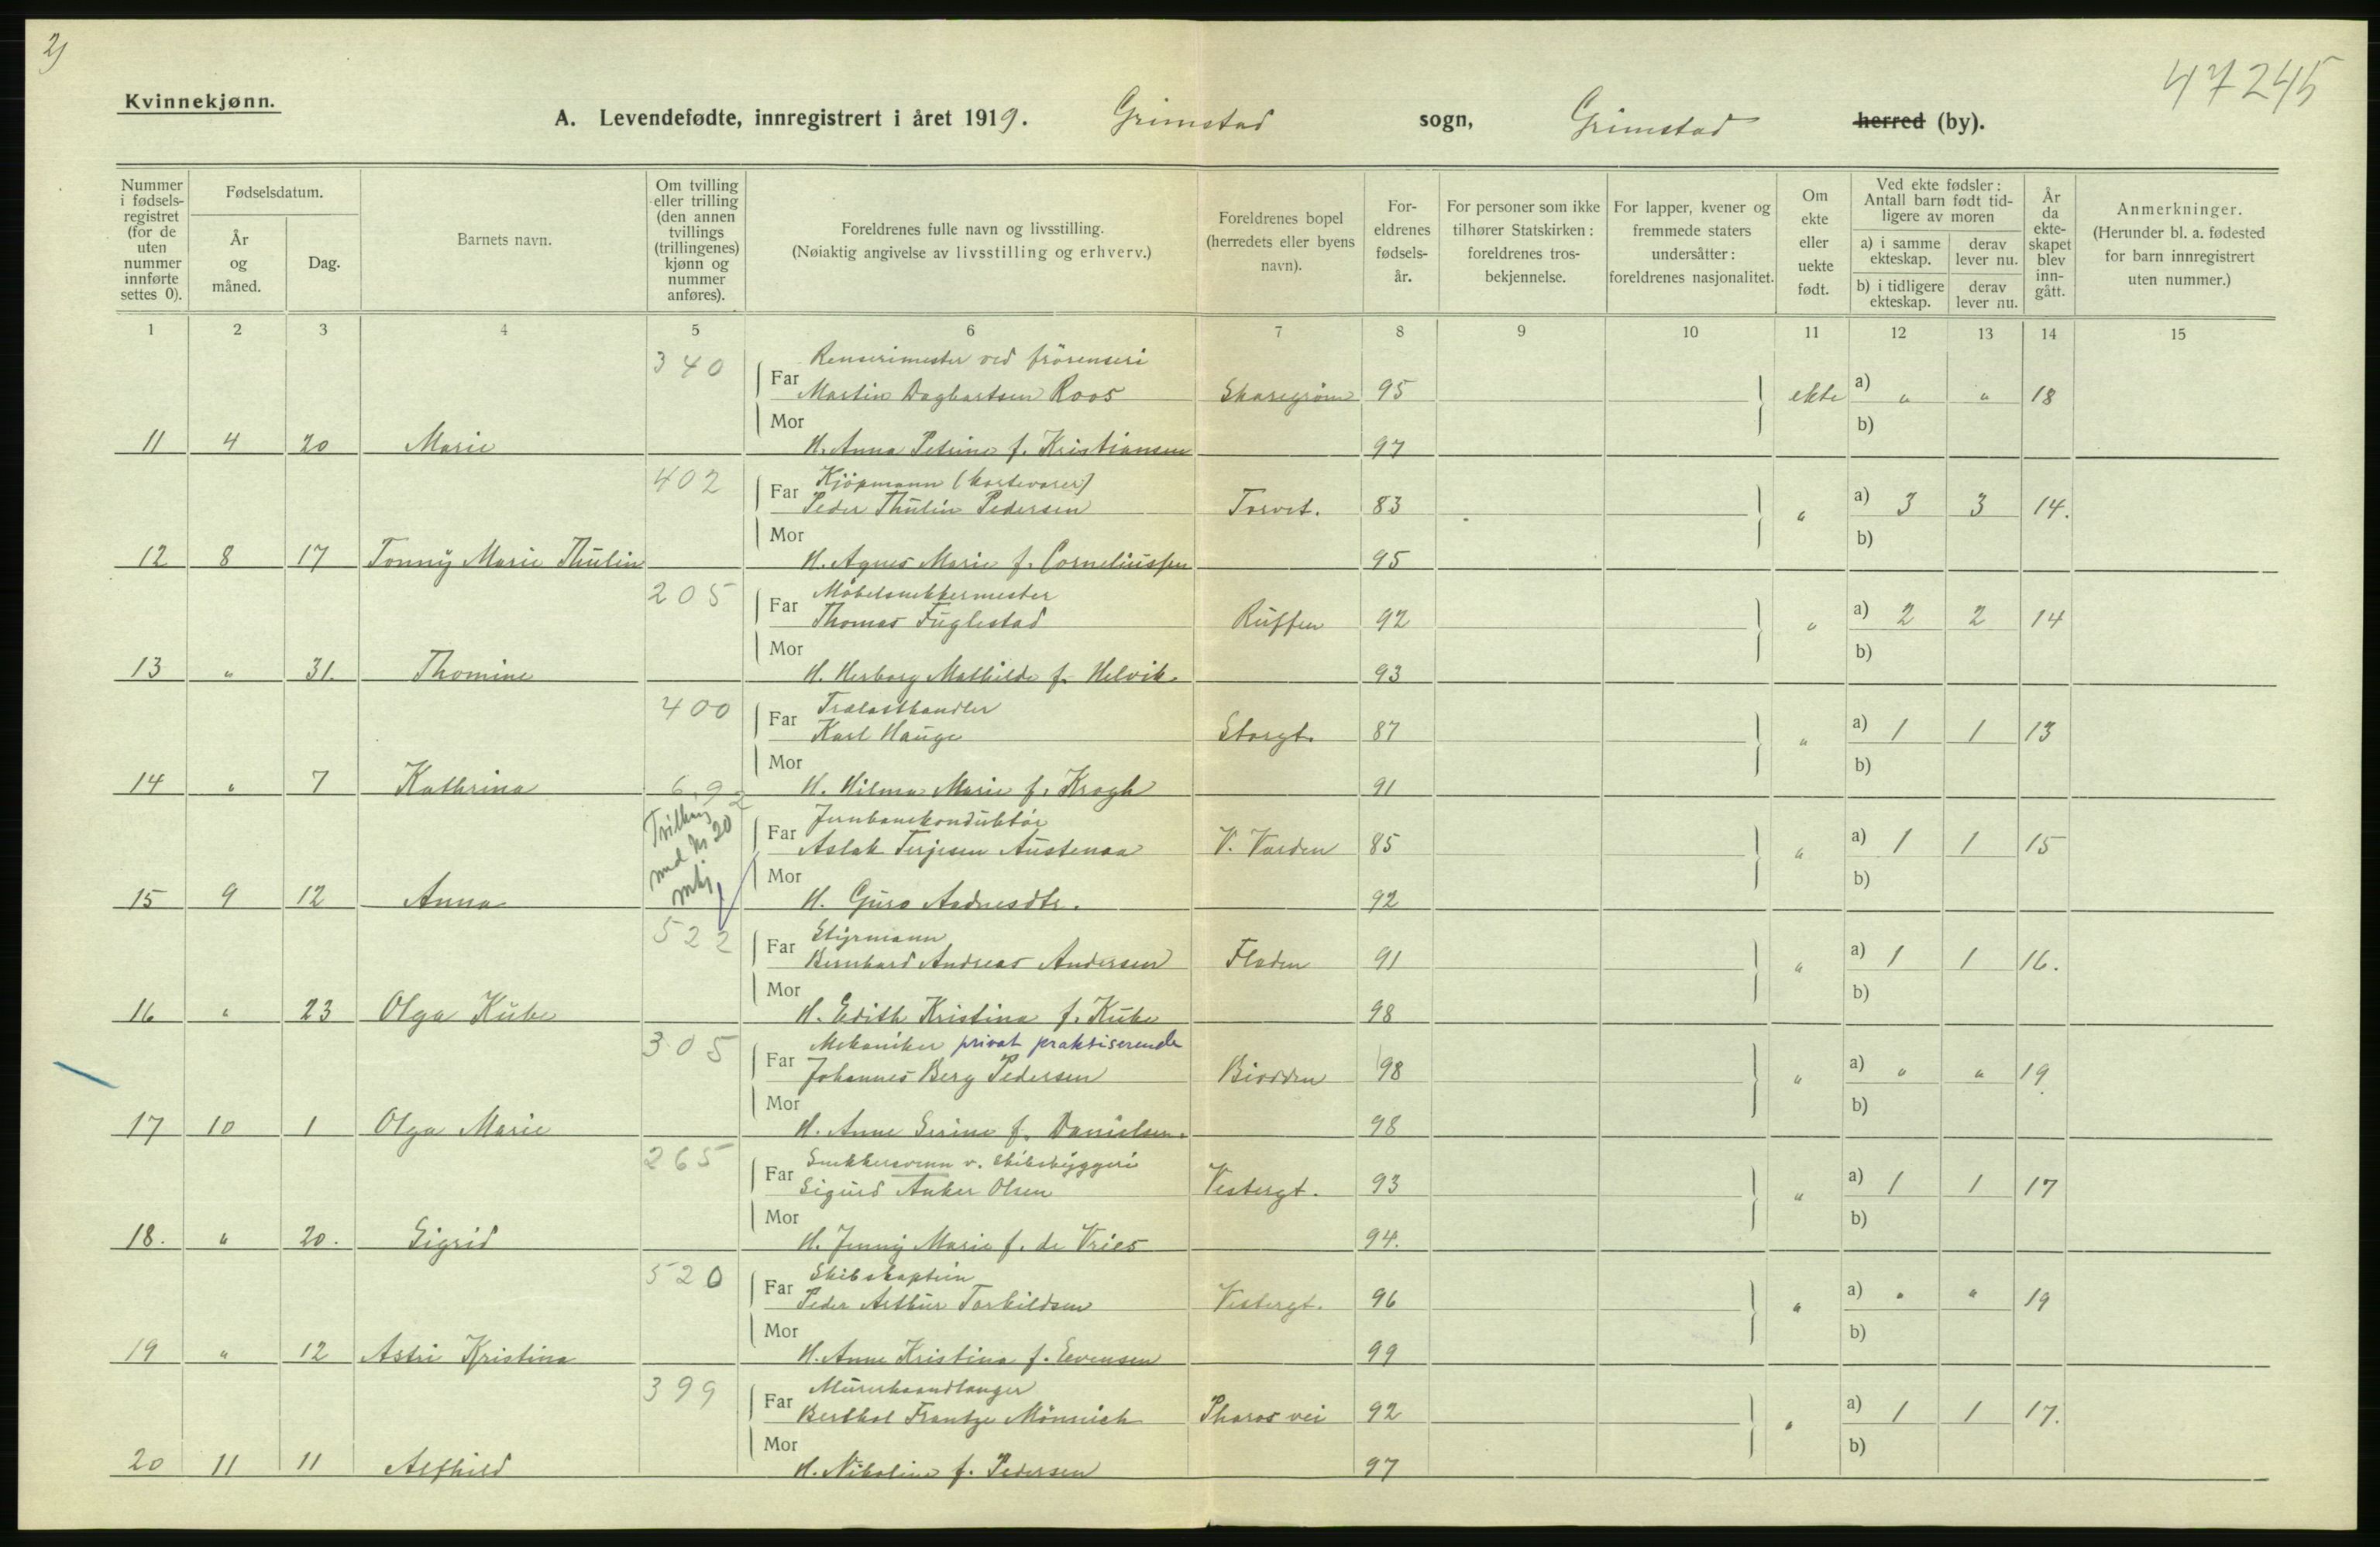 2)
47245
Kvinnekjønn.
A. Levendefødte, innregistrert i året 1919. Grimstad sogn, Grimstad herred (by).
Nummer i fødsels-registret (for de uten nummer innførte settes 0).
Fødselsdatum.
År og måned.
Dag.
Barnets navn.
Om tvilling eller trilling (den annen tvillings (trillingenes) kjønn og nummer anføres).
Foreldrenes fulle navn og livsstilling.
(Nøiaktig angivelse av livsstilling og erhverv.)
Foreldrenes bopel (herredets eller byens navn).
For-eldrenes fødsels-år.
For personer som ikke tilhører Statskirken: foreldrenes tros-bekjennelse.
For lapper, kvener og fremmede staters undersåtter: foreldrenes nasjonalitet.
Om ekte eller uekte født.
Ved ekte fødsler: Antall barn født tid-ligere av moren
a) i samme ekteskap.
derav lever nu.
b) i tidligere ekteskap.
derav lever nu.
År da ekte-skapet blev inn-gått.
Anmerkninger.
(Herunder bl. a. fødested for barn innregistrert uten nummer.)
1 2 3 4 5 6 7 8 9 10 11 12 13 14 15
340 Renserimester ved frörenseri
Far Martin Dagbartsen Roos Skaregröm 95 ekte a) " " 18
Mor b)
11 4 20 Marie H. Anna Petrine f. Kristiansen 97
402 Kjöpmann (kortevarer)
Far Peder Thulin Pedersen Torvet. 83 " a) 3 3 14.
Mor b)
12 8 17 Tonny Marie Thulin H. Agnes Marie f. Corneliussen 95
205 Möbelsnekkermester
Far Thomas Fuglestad Ruffen 92 " a) 2 2 14
Mor b)
13 " 31. Thomine H. Herborg Mathilde f. Helvik. 93
400 Trælasthandler
Far Karl Hauge Storgt. 87 " a) 1 1 13
Mor b)
14 " 7 Kathrina H. Hilma Marie f. Krogh 91
692 Jernbanekonduktör
Tvilling med No 20 mkj.
Far Aslak Terjesen Austenaa V. Varden 85 " a) 1 1 15
Mor b)
15 9 12 Anna H. Guro Aadnesdtr. 92
522 Styrmann
Far Bernhard Andreas Andersen Fladen 91 " a) 1 1 16.
Mor b)
16 " 23 Olga Kube H. Edith Kristina f. Kube 98
305 Mekaniker privat praktiserende
Far Johannes Berg Pedersen Biodden 98 " a) " " 19
Mor b)
17 10 1 Olga Marie H. Anne Serine f. Danielsen. 98
265 Snekkersvenn v. skibsbyggeri
Far Sigurd Anker Olsen Vestergt. 93 " a) 1 1 17
Mor b)
18. " 20. Sigrid H. Jenny Marie f. de Vries 94.
520 Skibskaptein
Far Peder Arthur Torkildsen Vestergt. 96 " a) " " 19
Mor b)
19 " 12 Astri Kristina H. Anne Kristina f. Evensen 99
399 Murerhaandlanger
Far Berthol Frantze Mönnich Pharos vei 92 " a) 1 1 17.
Mor b)
20 11 11 Alfhild H. Nikoline f. Pedersen 97